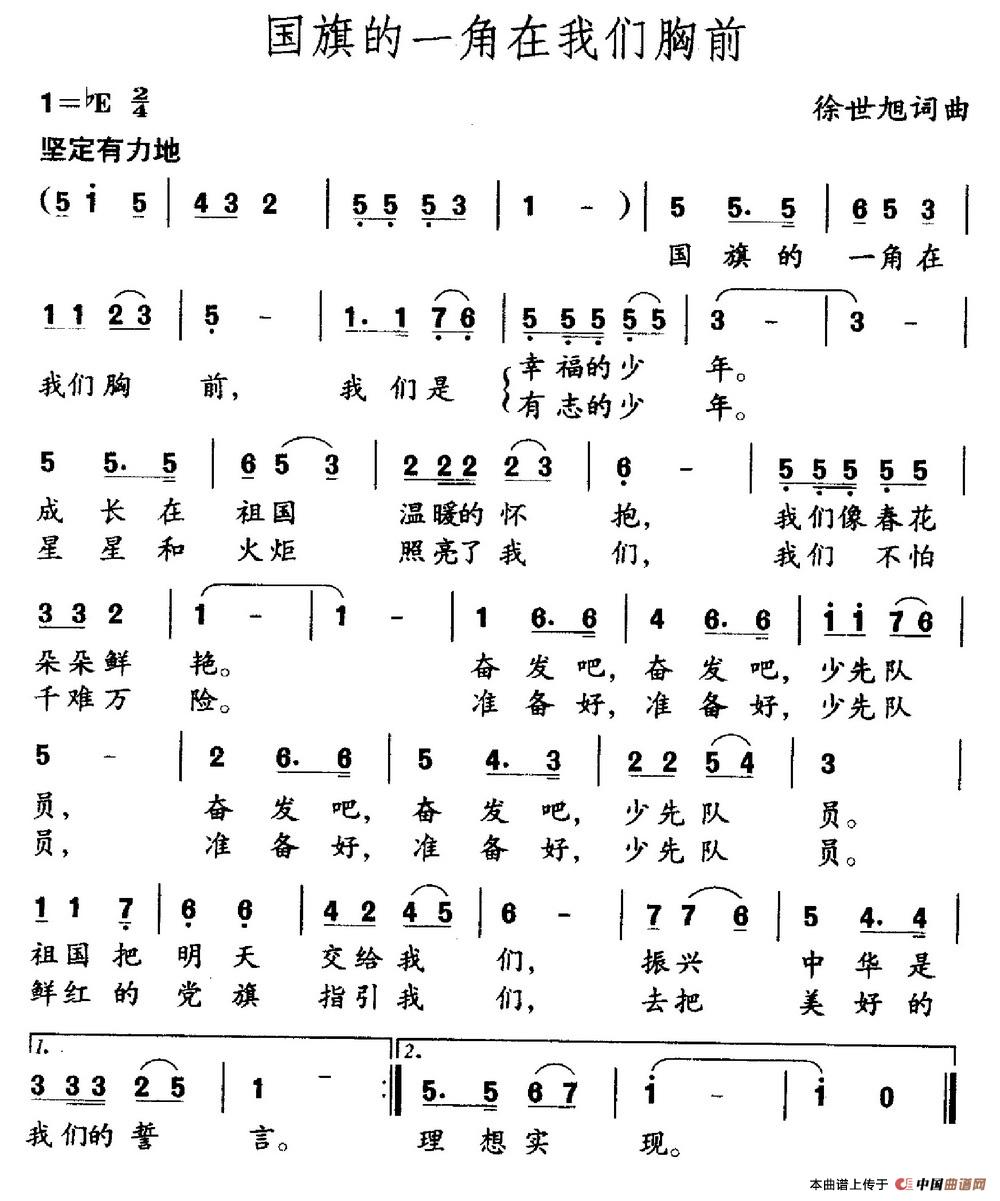 国旗的一角在我们胸前
1=♭E 2/4
徐世旭词曲
坚定有力地
(5 i 5 | 4 3 2 | 5 5 5 3 | 1 - ) | 5 5. 5 | 6 5 3 |
国 旗 的 一角在
1 1 2 3 | 5 - | 1. 1 7 6 | 5 5 5 5 5 | 3 - | 3 - |
我们胸 前, 我 们 是 幸福的少 年。
有志的少 年。
5 5. 5 | 6 5 3 | 2 2 2 2 3 | 6 - | 5 5 5 5 5 |
成 长 在 祖国 温暖的怀 抱, 我们像春花
星 星 和 火炬 照亮了我 们, 我们 不怕
3 3 2 | 1 - | 1 - | 1 6. 6 | 4 6. 6 | i i 7 6 |
朵朵鲜 艳。 奋发吧, 奋发吧, 少先队
千难万 险。 准备好, 准备好, 少先队
5 - | 2 6. 6 | 5 4. 3 | 2 2 5 4 | 3 |
员, 奋发吧, 奋发吧, 少先队 员。
员, 准备好, 准备好, 少先队 员。
1 1 7 | 6 6 | 4 2 4 5 | 6 - | 7 7 6 | 5 4. 4 |
祖国把 明天 交给我 们, 振兴 中华是
鲜红的 党旗 指引我 们, 去把 美好的
1. 2.
3 3 3 2 5 | 1 - :| 5. 5 6 7 | i - | i 0 ‖
我们的誓 言。 理想实 现。
本曲谱上传于 中国曲谱网